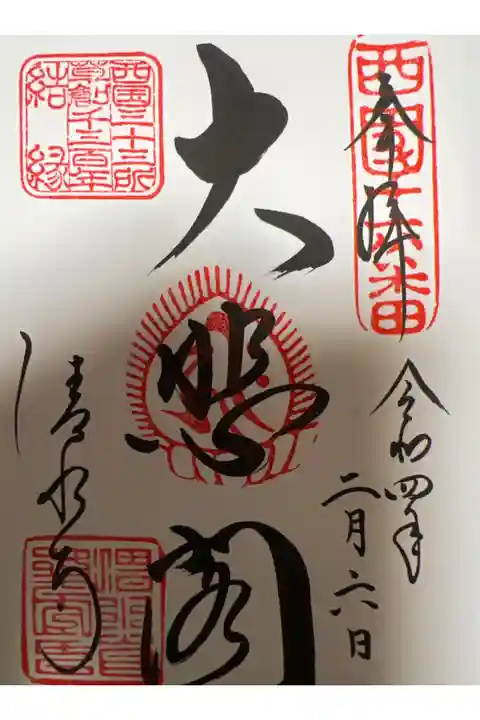 西國十六番
奉拝
令和四年
二月六日
大悲閣
西国三十三所
草創千三百年
結縁
清水寺